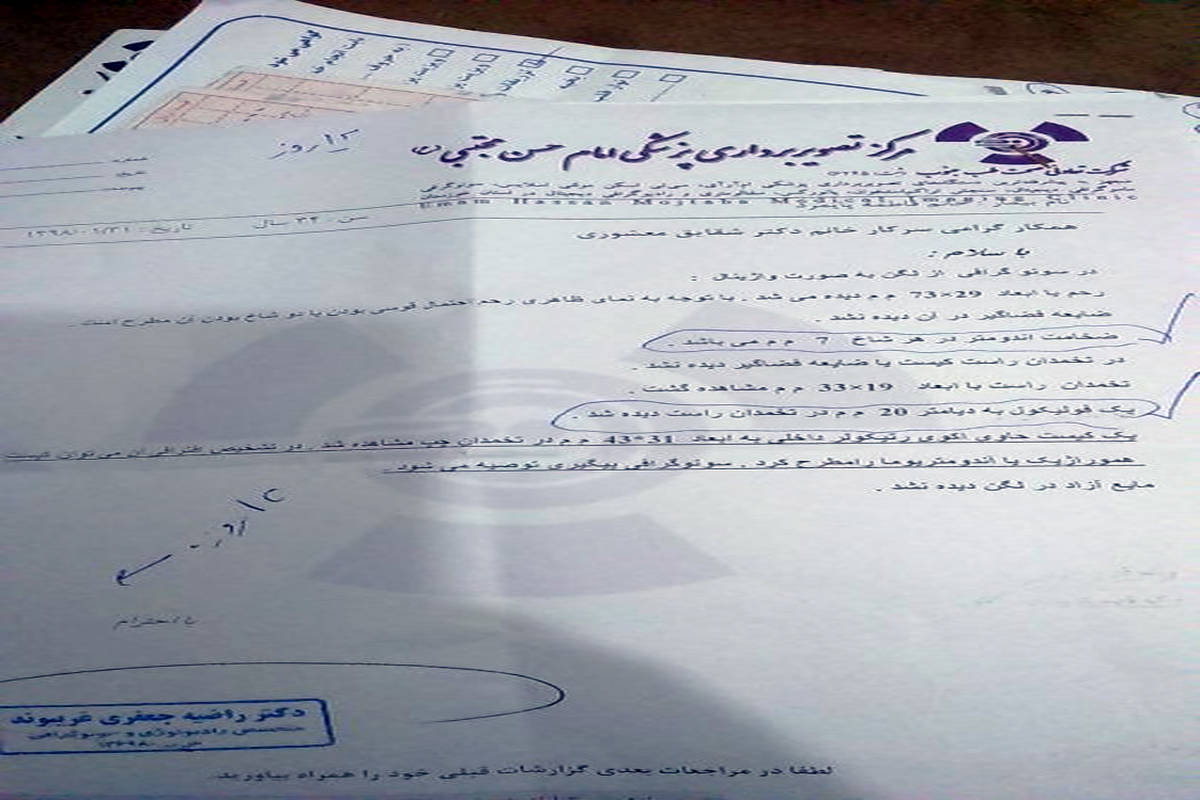 گواهی می شود
۱۲ روز
مرکز تصویربرداری پزشکی امام حسن مجتبی (ع)
Emam Hassan Mojtaba Medical Imaging Clinic
سن: ۳۲ سال
همکار گرامی سرکار خانم دکتر شقایق معشوری
با سلام :
در سونوگرافی از لگن به صورت واژینال :
رحم با ابعاد 29×73 م م دیده می شد . با توجه به نمای ظاهری رحم احتمال قوسی بودن یا دو شاخ بودن آن مطرح است .
ضایعه فضاگیر در آن دیده نشد .
ضخامت اندومتر در هر شاخ 7 م م می باشد .
در تخمدان راست کیست یا ضایعه فضاگیر دیده نشد .
تخمدان راست با ابعاد 19×33 م م مشاهده گشت .
یک فولیکول به دیامتر 20 م م در تخمدان راست دیده شد .
یک کیست حاوی اکوی رتیکولر داخلی به ابعاد 31*43 م م در تخمدان چپ مشاهده شد . در تشخیص افتراقی آن می توان کیست
هموراژیک یا آندومتریوما را مطرح کرد . سونوگرافی پیگیری توصیه می شود .
مایع آزاد در لگن دیده نشد .
با احترام
دکتر راضیه جعفری غریبوند
متخصص رادیولوژی و سونوگرافی
لطفا در مراجعات بعدی گزارشات قبلی خود را همراه بیاورید.